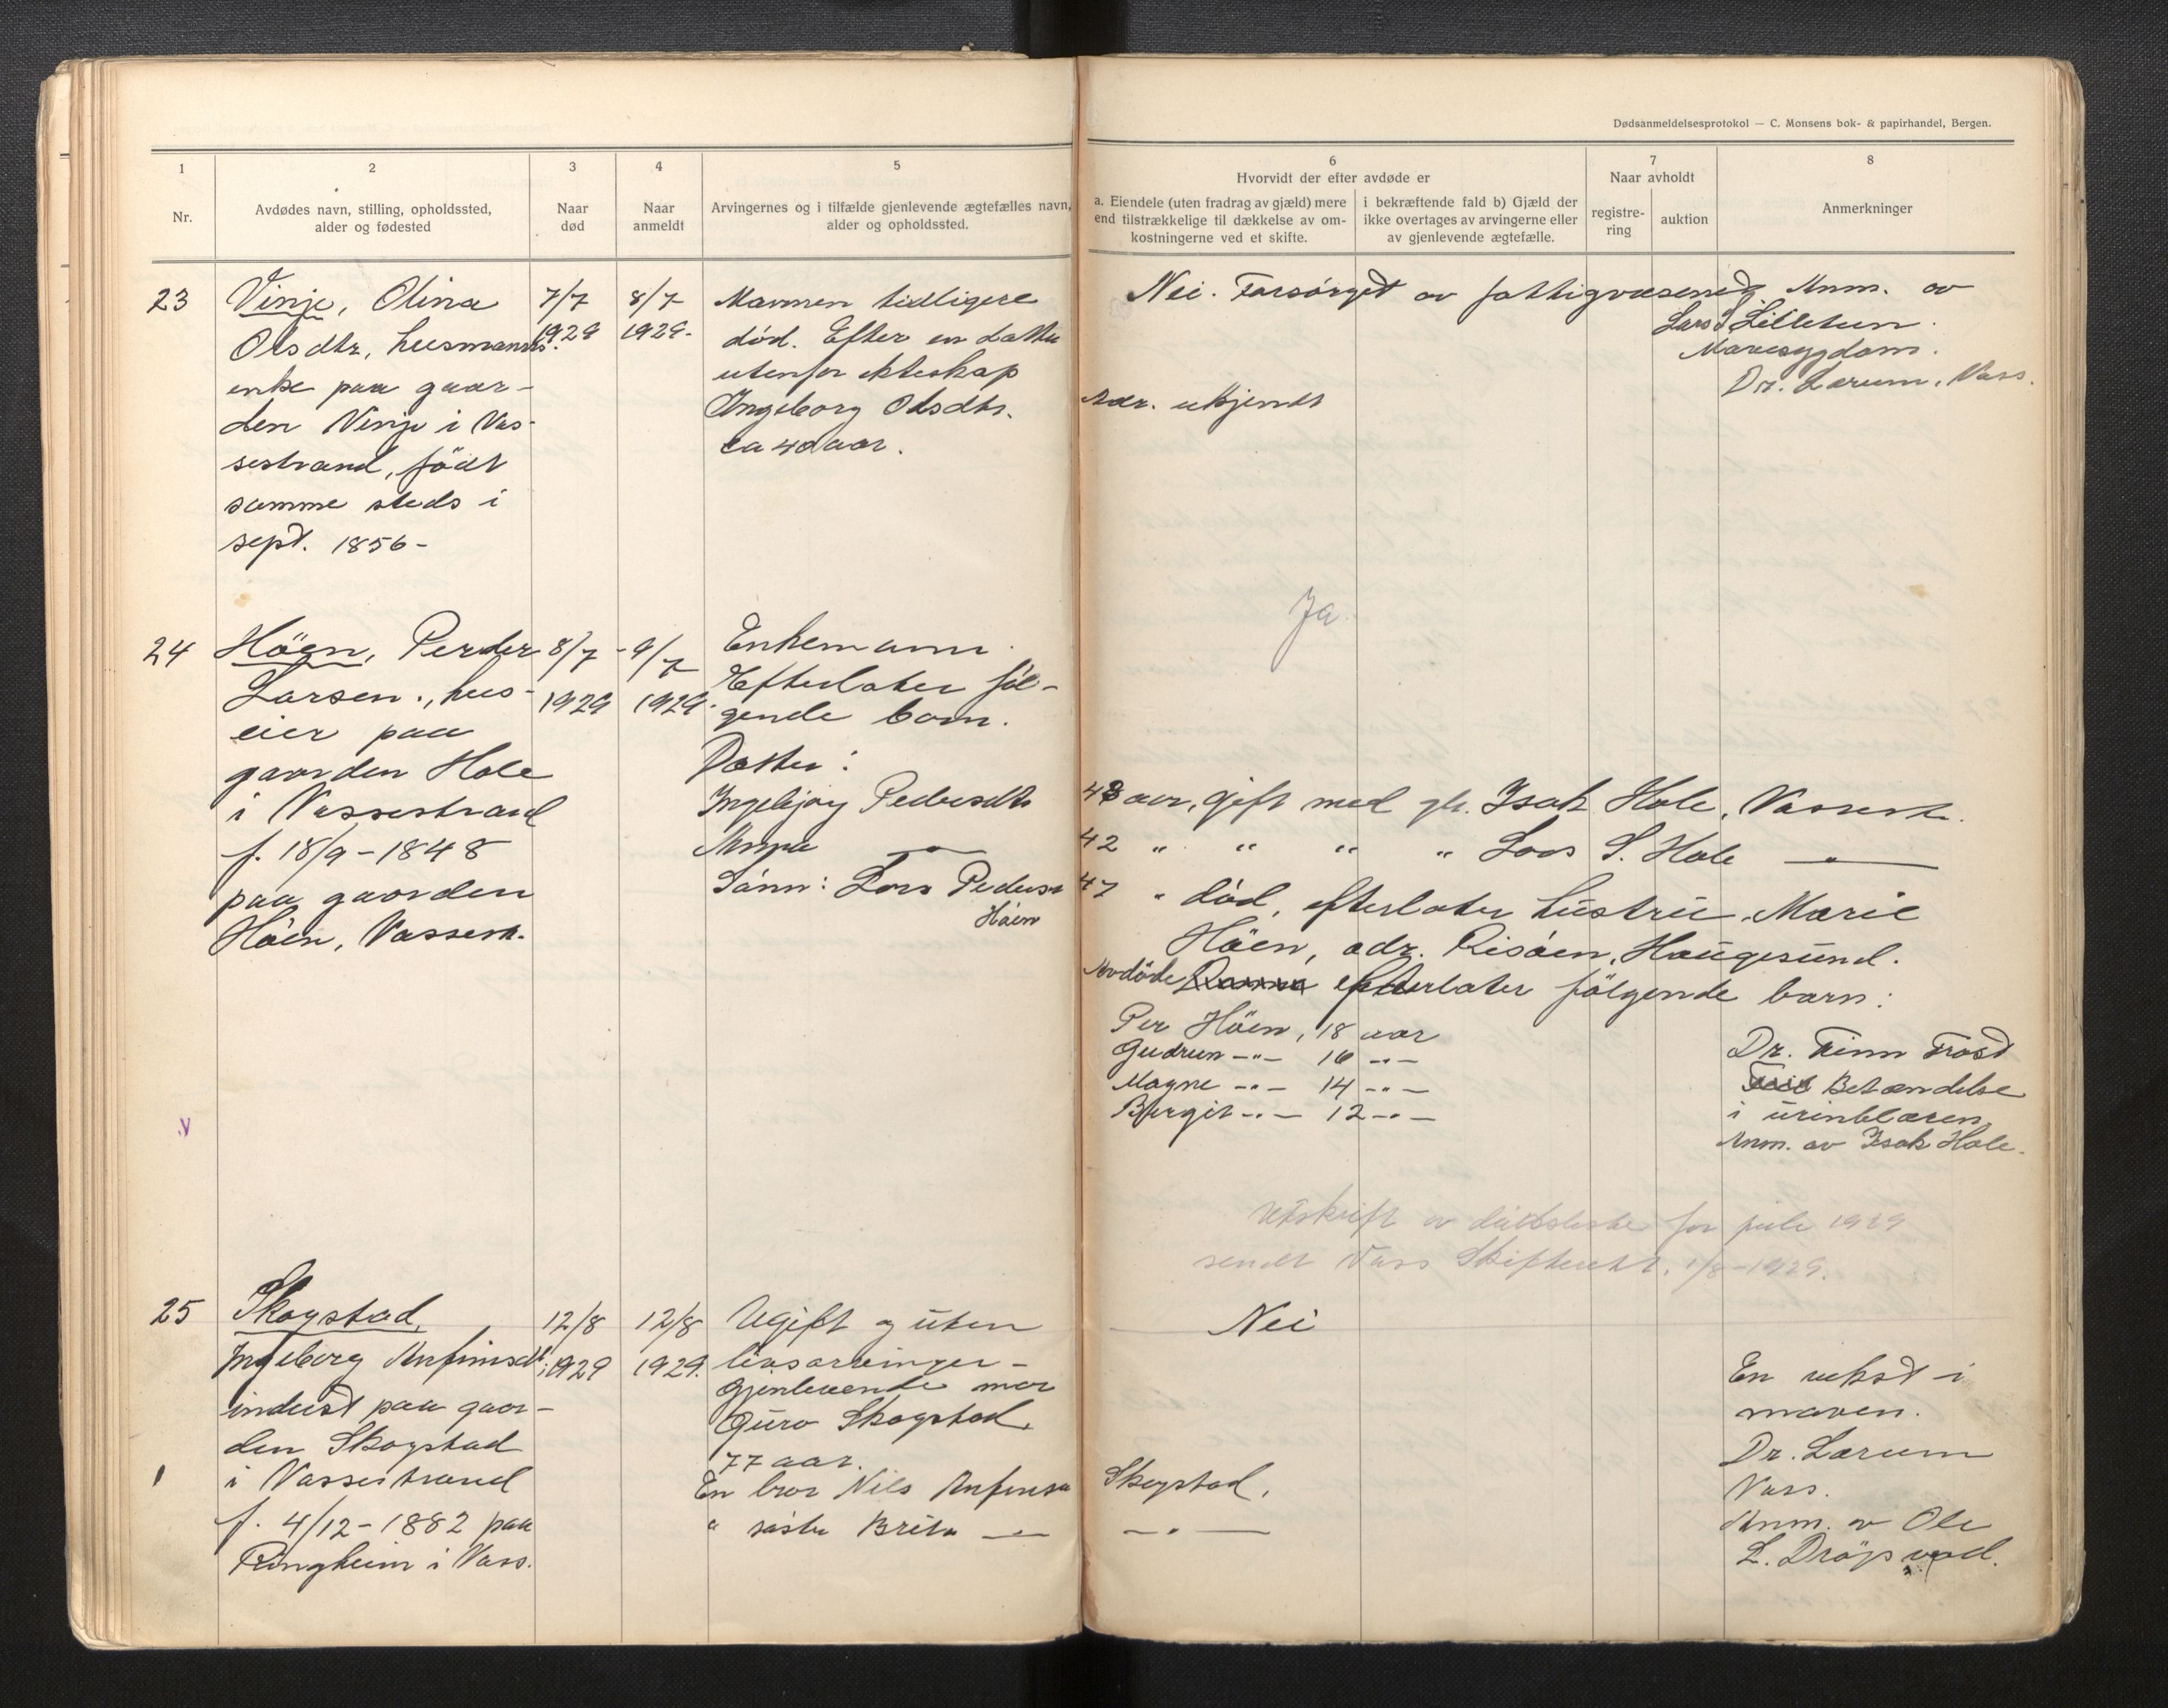 Dødsanmeldelsesprotokol — C. Monsens bok- & papirhandel, Bergen.
1
2
3
4
5
6
7
8
Nr.
Avdødes navn, stilling, opholdssted,
alder og fødested
Naar
død
Naar
anmeldt
Arvingernes og i tilfælde gjenlevende ægtefælles navn,
alder og opholdssted.
Hvorvidt der efter avdøde er
a. Eiendele (uten fradrag av gjæld) mere
end tilstrækkelige til dækkelse av om-
kostningerne ved et skifte.
i bekræftende fald b) Gjæld der
ikke overtages av arvingerne eller
av gjenlevende ægtefælle.
Naar avholdt
registre-
ring
auktion
Anmerkninger
23
Vinje, Olina
Olsdtr, husmanns
enke paa gaar-
den Vinje i Vos-
sestrand, født
samme steds i
sept. 1856-
7/7
1929
8/7
1929-
Mannen tidligere
død. Efter en datter
utenfor ekteskap
Ingeborg Olsdtr.
ca 40 aar.
Adr. ukjendt
Nei. Forsørget av fattigvæsenet
Anm. av
Lars Lilletun.
Mavesygdom.
Dr. Lærum, Voss.
24
Höen, Perder
Larsen, hus-
eier paa
gaarden Hole
i Vossestrand
f. 18/9-1848
paa gaarden
Höen, Vossestr.
8/7-
1929
9/7
1929.
Enkemann.
Efterlater föl-
gende barn.
Datter:
Ingebjørg Pedersdtr
Anna —"—
Sönn: Lars Pedersen
Höen
Ja
43 aar, gift med gbr. Isak Hole, Vossestr.
42 " " " " Lars S. Hole —"—
47 " död, efterlater hustru Marie
Höen, adr. Risöen, Haugesund.
Avdöde efterlater fölgende barn:
Per Höen, 18 aar
Gudrun —"— 16 —"—
Magne —"— 14 —"—
Bergit —"— 12 —"—
Dr. Finn Frost
Betændelse
i urinblæren
Anm. av Isak Hole.
Utskrift av dödsliste for juli 1929
sendt Voss Skifterett. 1/8-1929.
25
Skogstad,
Ingeborg Anfinsdt.
inderst paa gaar-
den Skogstad
i Vossestrand
f. 4/12-1882 paa
Ringheim i Voss.
12/8
1929
12/8
1929.
Ugift og uten
livsarvinger-
Gjenlevende mor
Guro Skogstad
77 aar.
En bror Nils Anfinsen Skogstad,
" søster Brita —"— —"—
Nei
En vekst i
maven.
Dr. Lærum
Voss.
Anm. av Ole
L. Dröpsvad.